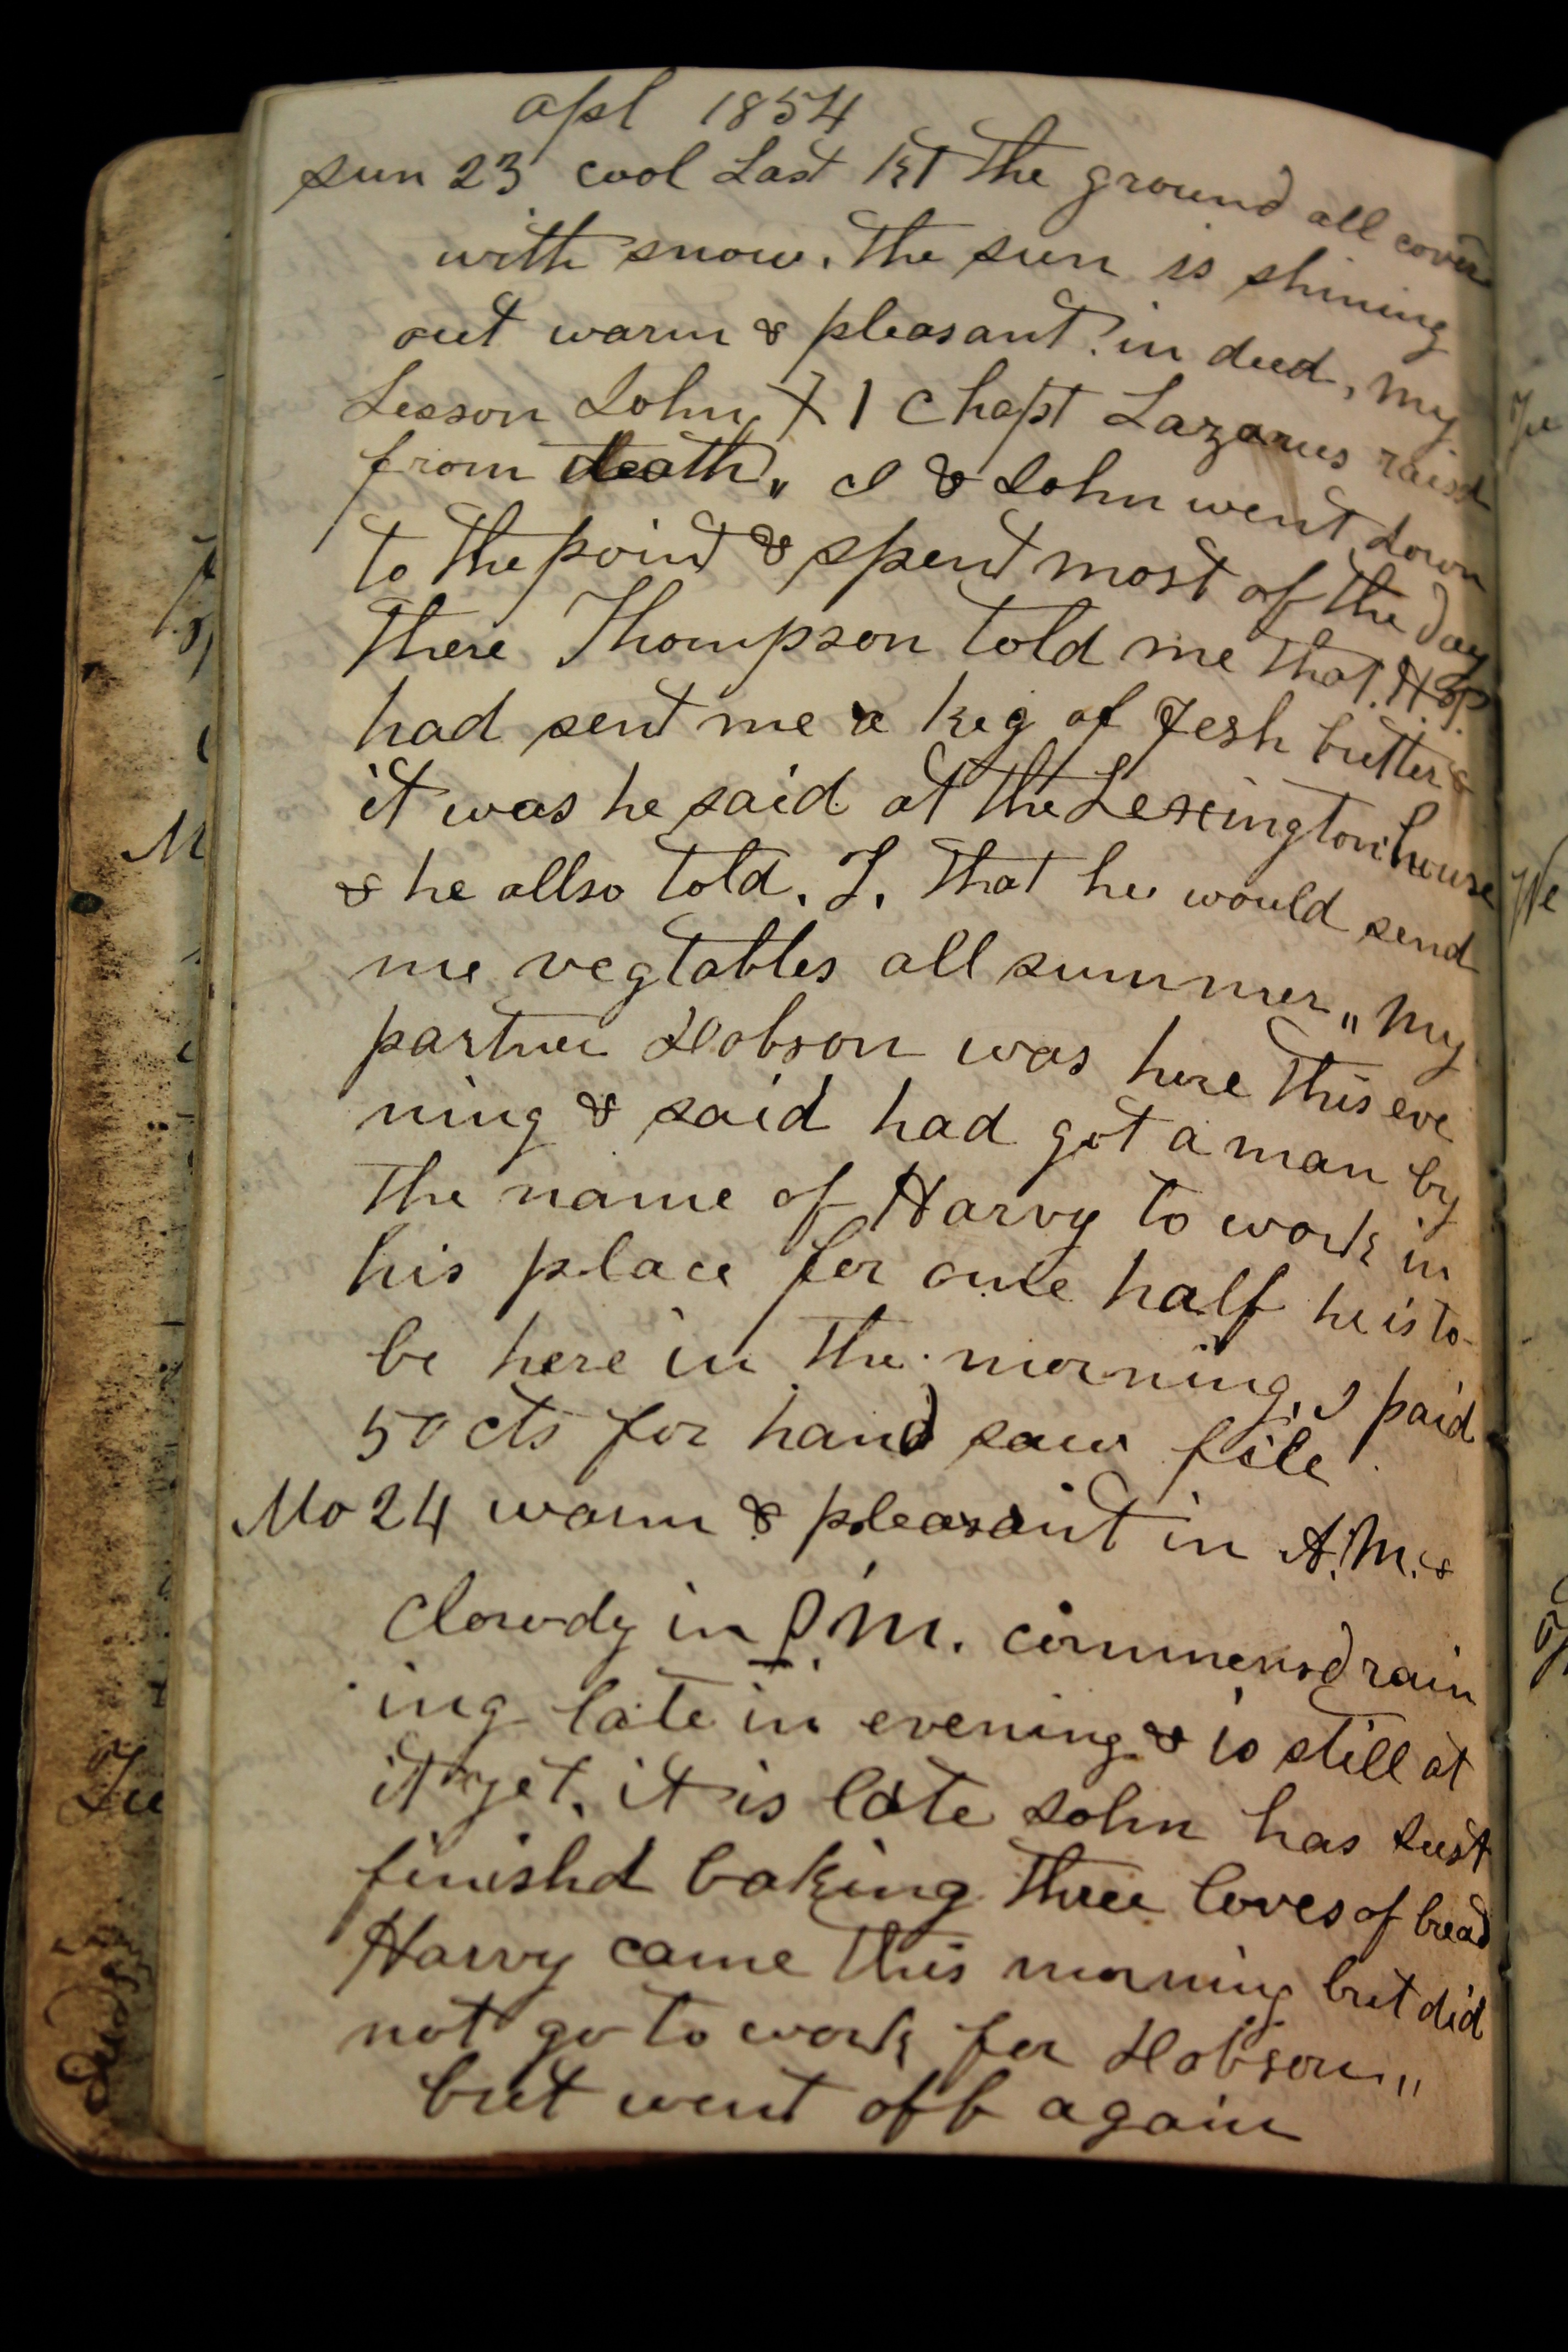 apl 1854
sun 23 cool Last kt the ground all coverd
with snow. the sun is shining
out warm & pleasant. in deed, my
Lesson John X1 Chapt Lazarus raisd
from death,, I & John went down
to the point & spent most of the day
there Thompson told me that
had sent me a keg of fesh butter &
it was he said at the Lexington house
& he allso told. T. that he would send
me vegtables all summer,, my
partner Hobson was here this eve
ning & said had got a man by
the name of Harvy to work in
his place for one half he is to
be here in the morning, I paid
50 cts for hand saw file
Mo 24 warm & pleasant in A.M. &
Clowdy in P.M. commensd rain
ing late in evening & is still at
it yet. it is late John has Just
finishd baking three loves of bread
Harvy came this morning but did
not go to work for Hobson,,
but went off again
M
Tu
We